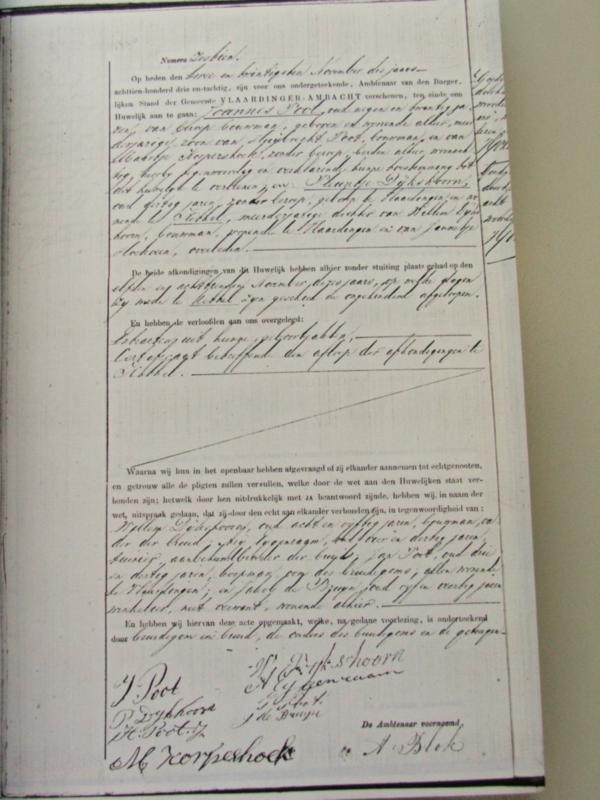 Numero Zestien.
Op heden den twee en twintigsten November des jaars
achttien-honderd drie en-tachtig, zijn voor ons ondergeteekende, Ambtenaar van den Burger-
lijken Stand der Gemeente VLAARDINGER-AMBACHT verschenen, ten einde een
Huwelijk aan te gaan: Joannes Poot, oud negen en twintig ja-
ren, van beroep bouwman, geboren en wonende alhier, meer
derjarige zoon van Huijbregt Poot, bouwman, en van
Maartje Korpershoek, zonder beroep, beiden alhier woonach
tig, hierbij tegenwoordig en verklarende hunne toestemming tot
dit huwelijk te verleenen; en Dijkshoorn,
oud dertig jaren, zonder beroep, geboren te Vlaardingen en wo
nende te Kethel, meerderjarige dochter van Willem Dijks
hoorn, bouwman, wonende te Vlaardingen en van Jannetje
overleden.
De beide afkondigingen van dit Huwelijk hebben alhier zonder stuiting plaats gehad op den
elfden en achttienden November dezes jaars, op welke dagen
zij mede te Kethel zijn geschied en ongehinderd afgeloopen.
En hebben de verloofden aan ons overgelegd:
Extracten uit hunne geboorteakten,
Certificaat betreffende den afloop der afkondigingen te
Kethel.
Waarna wij hun in het openbaar hebben afgevraagd of zij elkander aannemen tot echtgenooten,
en getrouw alle de pligten zullen vervullen, welke door de wet aan den Huwelijken staat ver-
bonden zijn; hetwelk door hen uitdrukkelijk met ja beantwoord zijnde, hebben wij, in naam der
wet, uitspraak gedaan, dat zij door den echt aan elkander verbonden zijn, in tegenwoordigheid van:
Willem Dijkshoorn, oud acht en vijftig jaren, bouwman, va
der der bruid; Arij oud vier en dertig jaren,
tuinier, aanbehuwdbroeder der bruid; Jan Poot, oud drie
en dertig jaren, koopman, oom des bruidegoms; allen wonende
te Vlaardingen; en Jakob de Bruijn, oud vijf en veertig jaren
winkelier, niet verwant, wonende alhier.
En hebben wij hiervan deze acte opgemaakt, welke, na gedane voorlezing, is onderteekend
door bruidegom en bruid, de ouders des bruidegoms en de getuigen.
J. Poot
W. Dijkshoorn
P. Dijkshoorn
H. Poot Jz
J. Poot.
J de Bruijn
De Ambtenaar voornoemd,
M Korpershoek
A. Blok